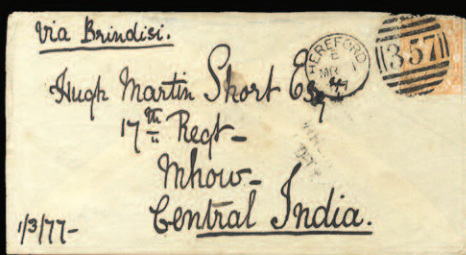 Via Brindisi.
HEREFORD
MR 1
77
357
Hugh Martin Short Esq
17th Regt-
Mhow-
Central India.
1/3/77-